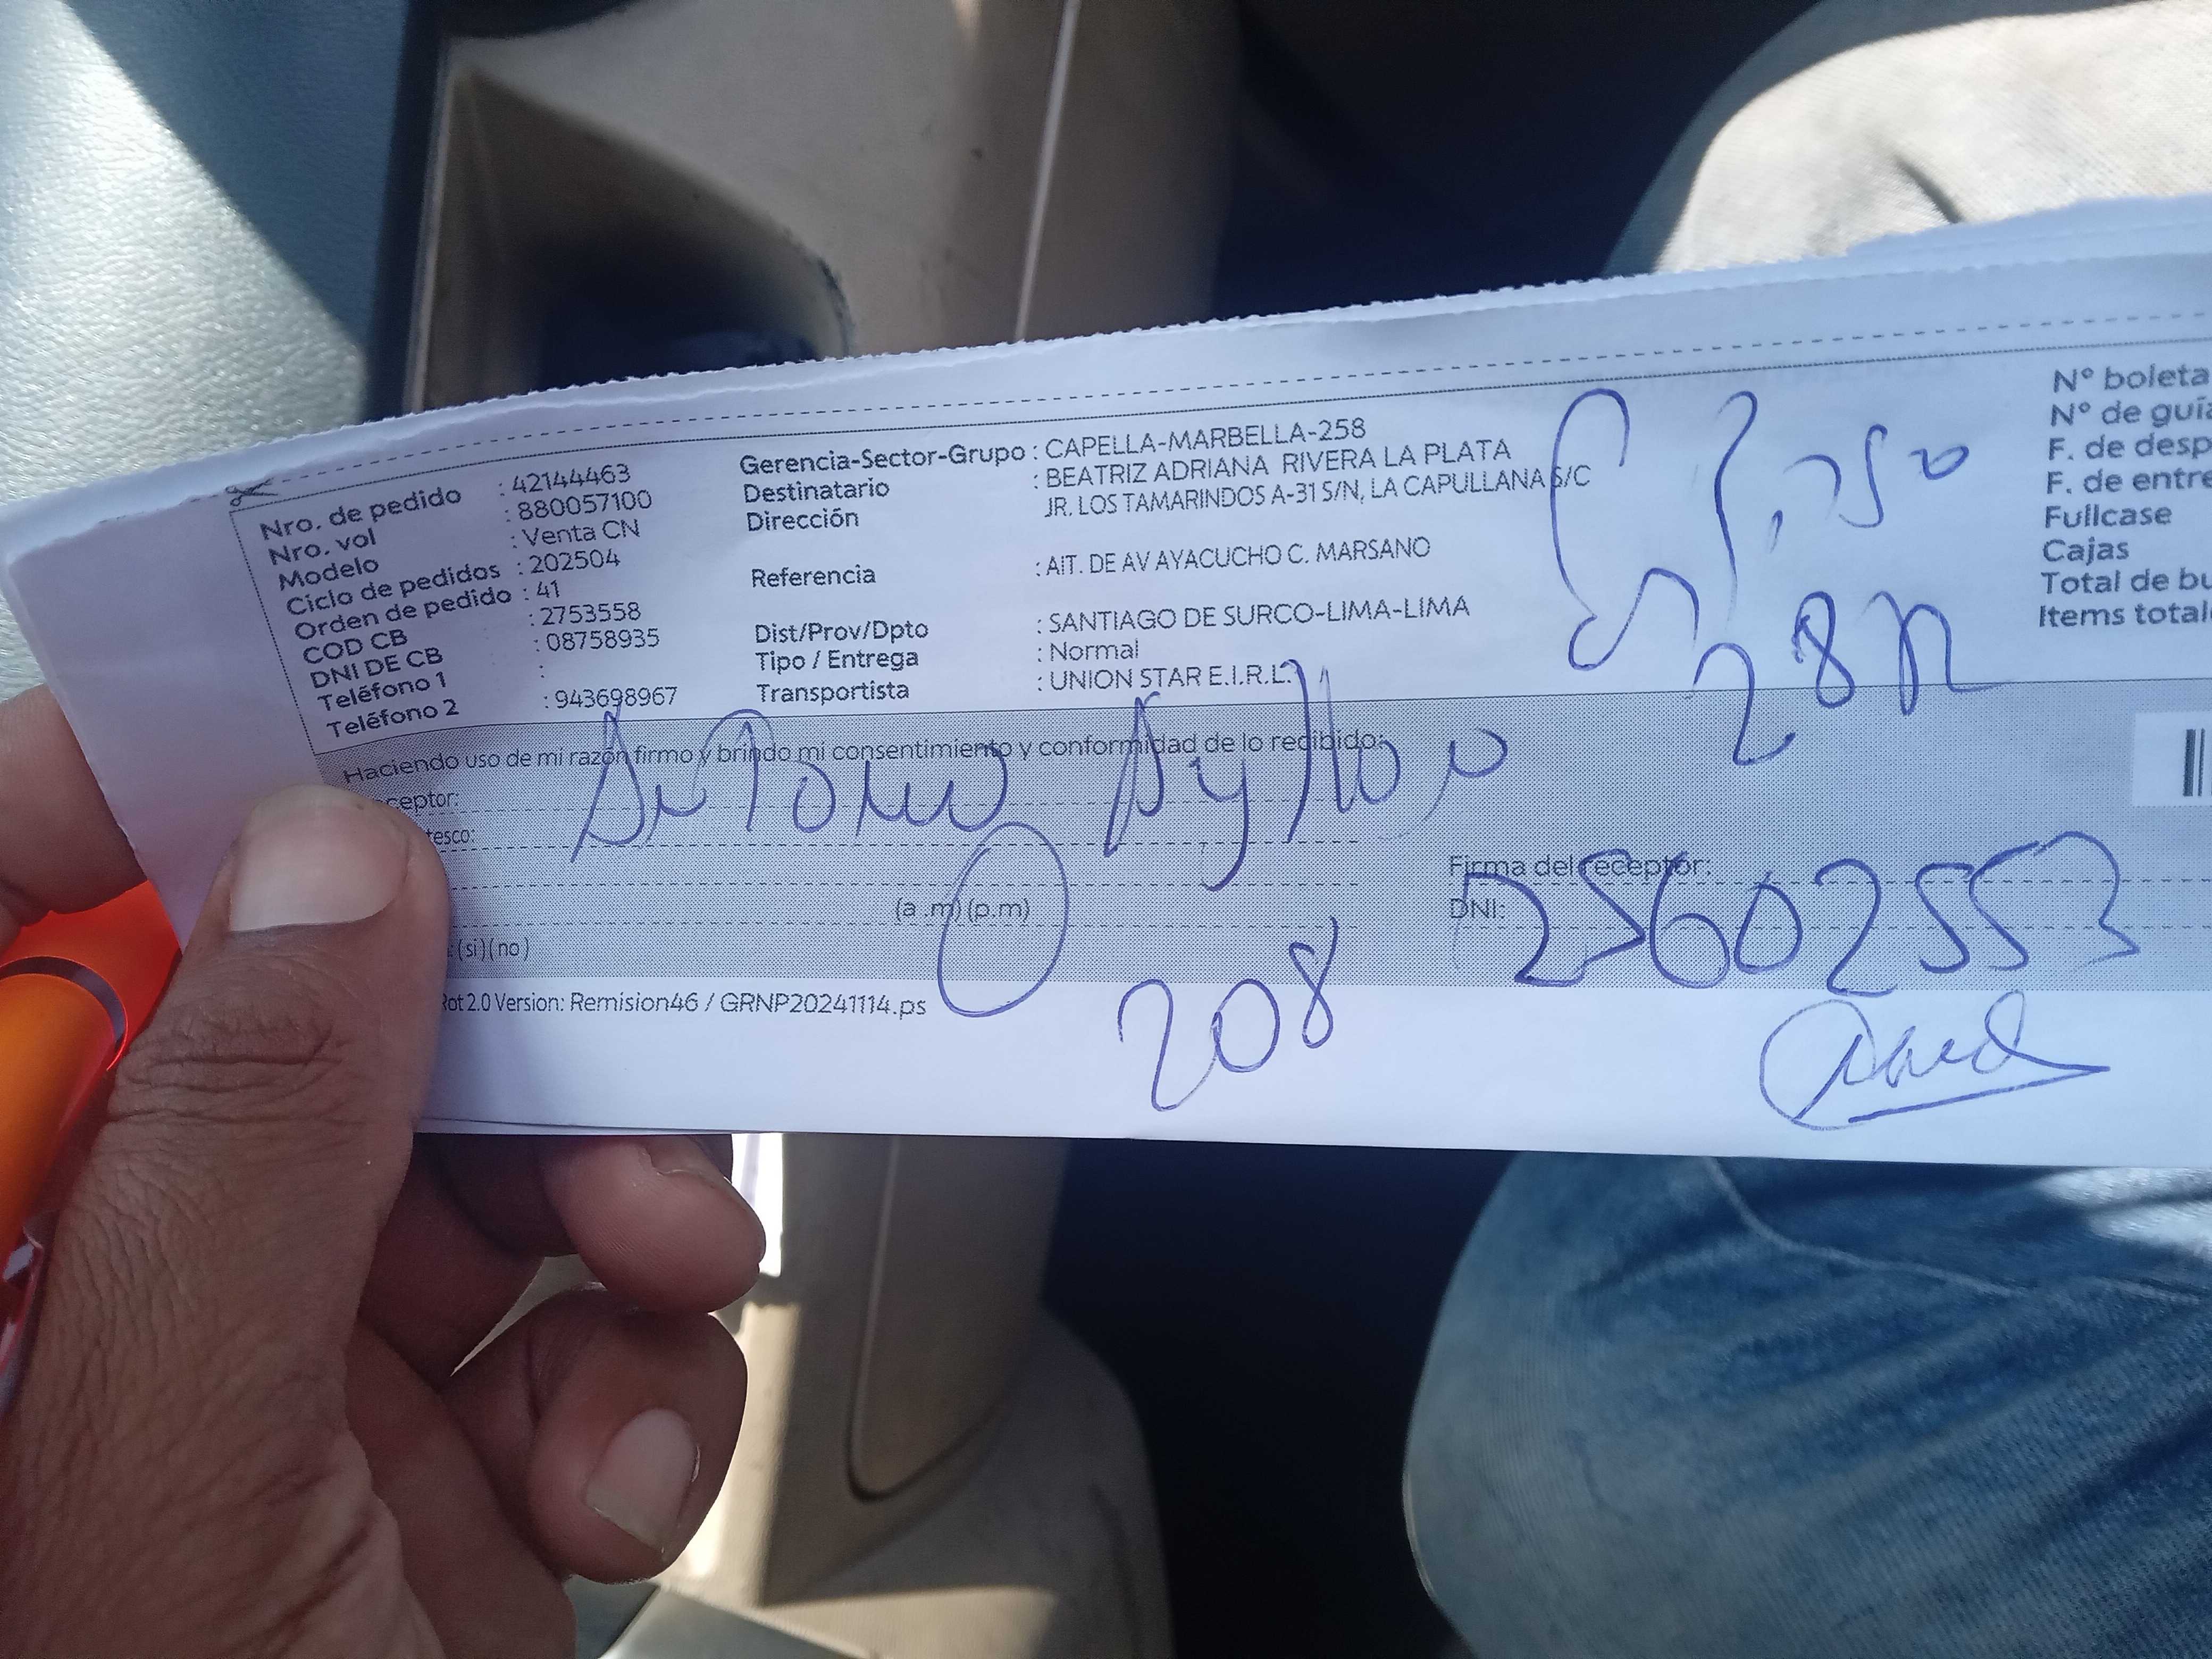 Nro. de pedido : 42144463
Nro. vol : 880057100
Modelo : Venta CN
Ciclo de pedidos : 202504
Orden de pedido : 41
COD CB : 2753558
DNI DE CB : 08758935
Teléfono 1 :
Teléfono 2 : 943698967
Gerencia-Sector-Grupo : CAPELLA-MARBELLA-258
Destinatario : BEATRIZ ADRIANA RIVERA LA PLATA
Dirección JR. LOS TAMARINDOS A-31 S/N, LA CAPULLANA S/C
Referencia : AIT. DE AV AYACUCHO C. MARSANO
Dist/Prov/Dpto : SANTIAGO DE SURCO-LIMA-LIMA
Tipo / Entrega : Normal
Transportista : UNION STAR E.I.R.L.
N° boleta
N° de guía
F. de desp
F. de entre
Fullcase
Cajas
Total de bu
Items total
28
Haciendo uso de mi razón firmo y brindo mi consentimiento y conformidad de lo recibido:
ceptor:
tesco:
Firma del receptor:
(a .m) (p.m)
DNI: 25602553
: (si) ( no )
Rot 2.0 Version: Remision46 / GRNP20241114.ps
208